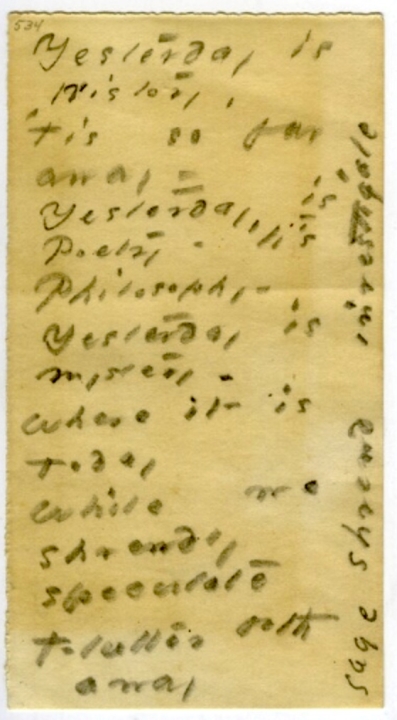 534
Yesterday is
History,
'Tis so far
away -
Yesterday is
Poetry - 'tis
Philosophy -
Yesterday is
mystery -
Where it is
Today
While we
shrewdly
speculate
Flutter both
away
sage shrewd investigate